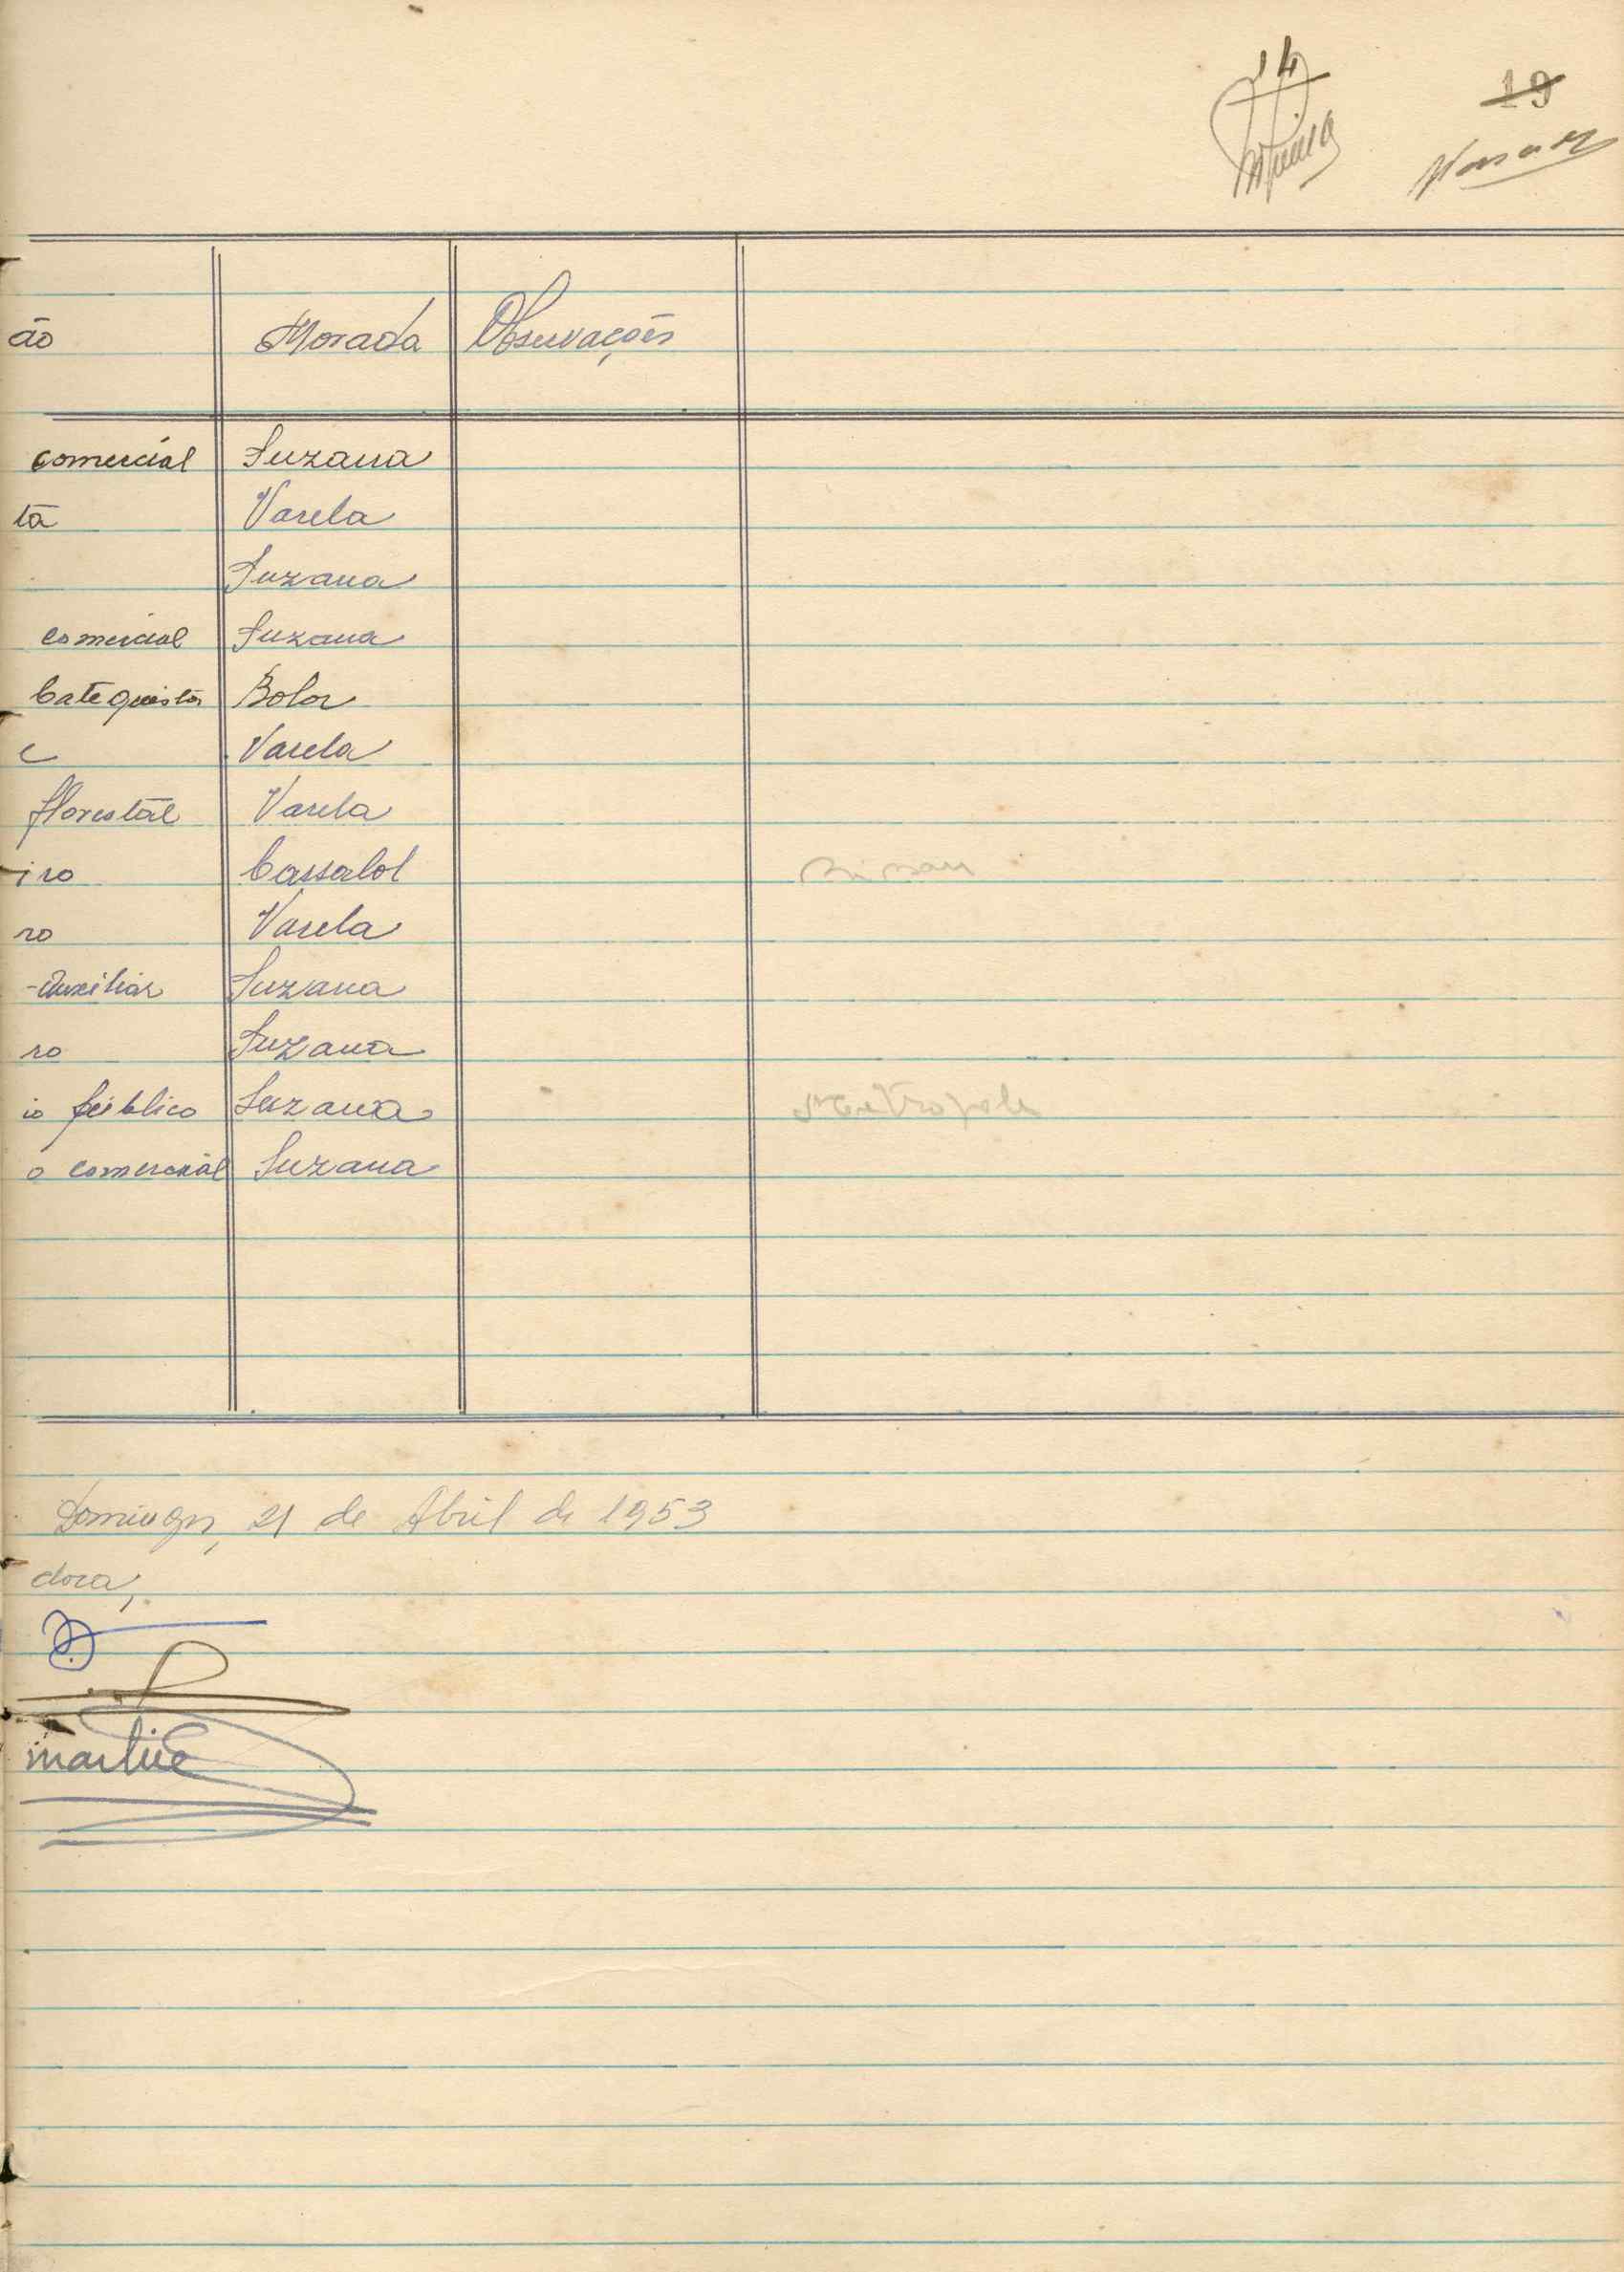 14
19
ão Morada Observações
comercial Suzana
tã Varela
Suzana
comercial Suzana
Catequista Bolor
Varela
florestal Varela
iro Cassalol Bissau
ro Varela
-Auxiliar Suzana
ro Suzana
io público Suzana Metropole
o comercial Suzana
Domingos, 21 de Abril de 1953
dora,